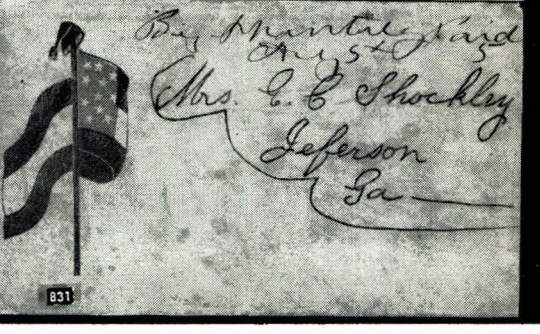 Big Shanty Paid
Aug 5th 5
Mrs. E. C Shockley
Jeferson
Ga
831